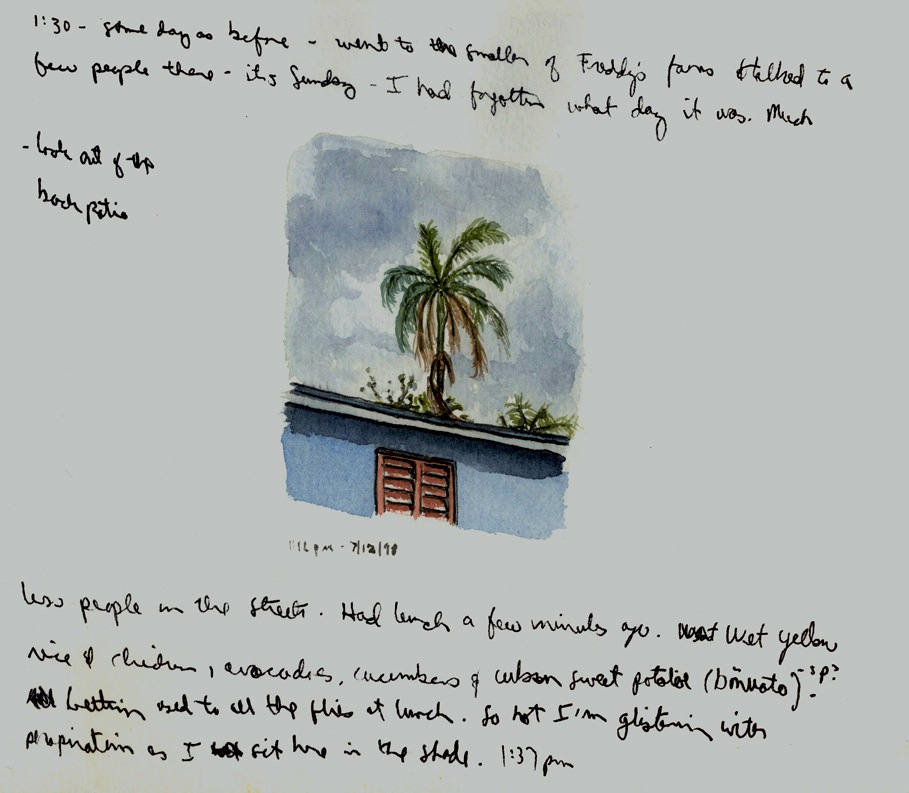 1:30 - same day as before - went to the smaller of Freddy's farms & talked to a
few people there - it's Sunday - I had forgotten what day it was. Much
- look out of the
back patio
7/12/98
less people in the streets. Had lunch a few minutes ago. Wet yellow
rice & chicken, avocados, cucumbers & cuban sweet potatoe (bōniato) - sp?
Getting used to all the flies at lunch. So hot I'm glistening with
perspiration as I sit here in the shade. 1:37 pm